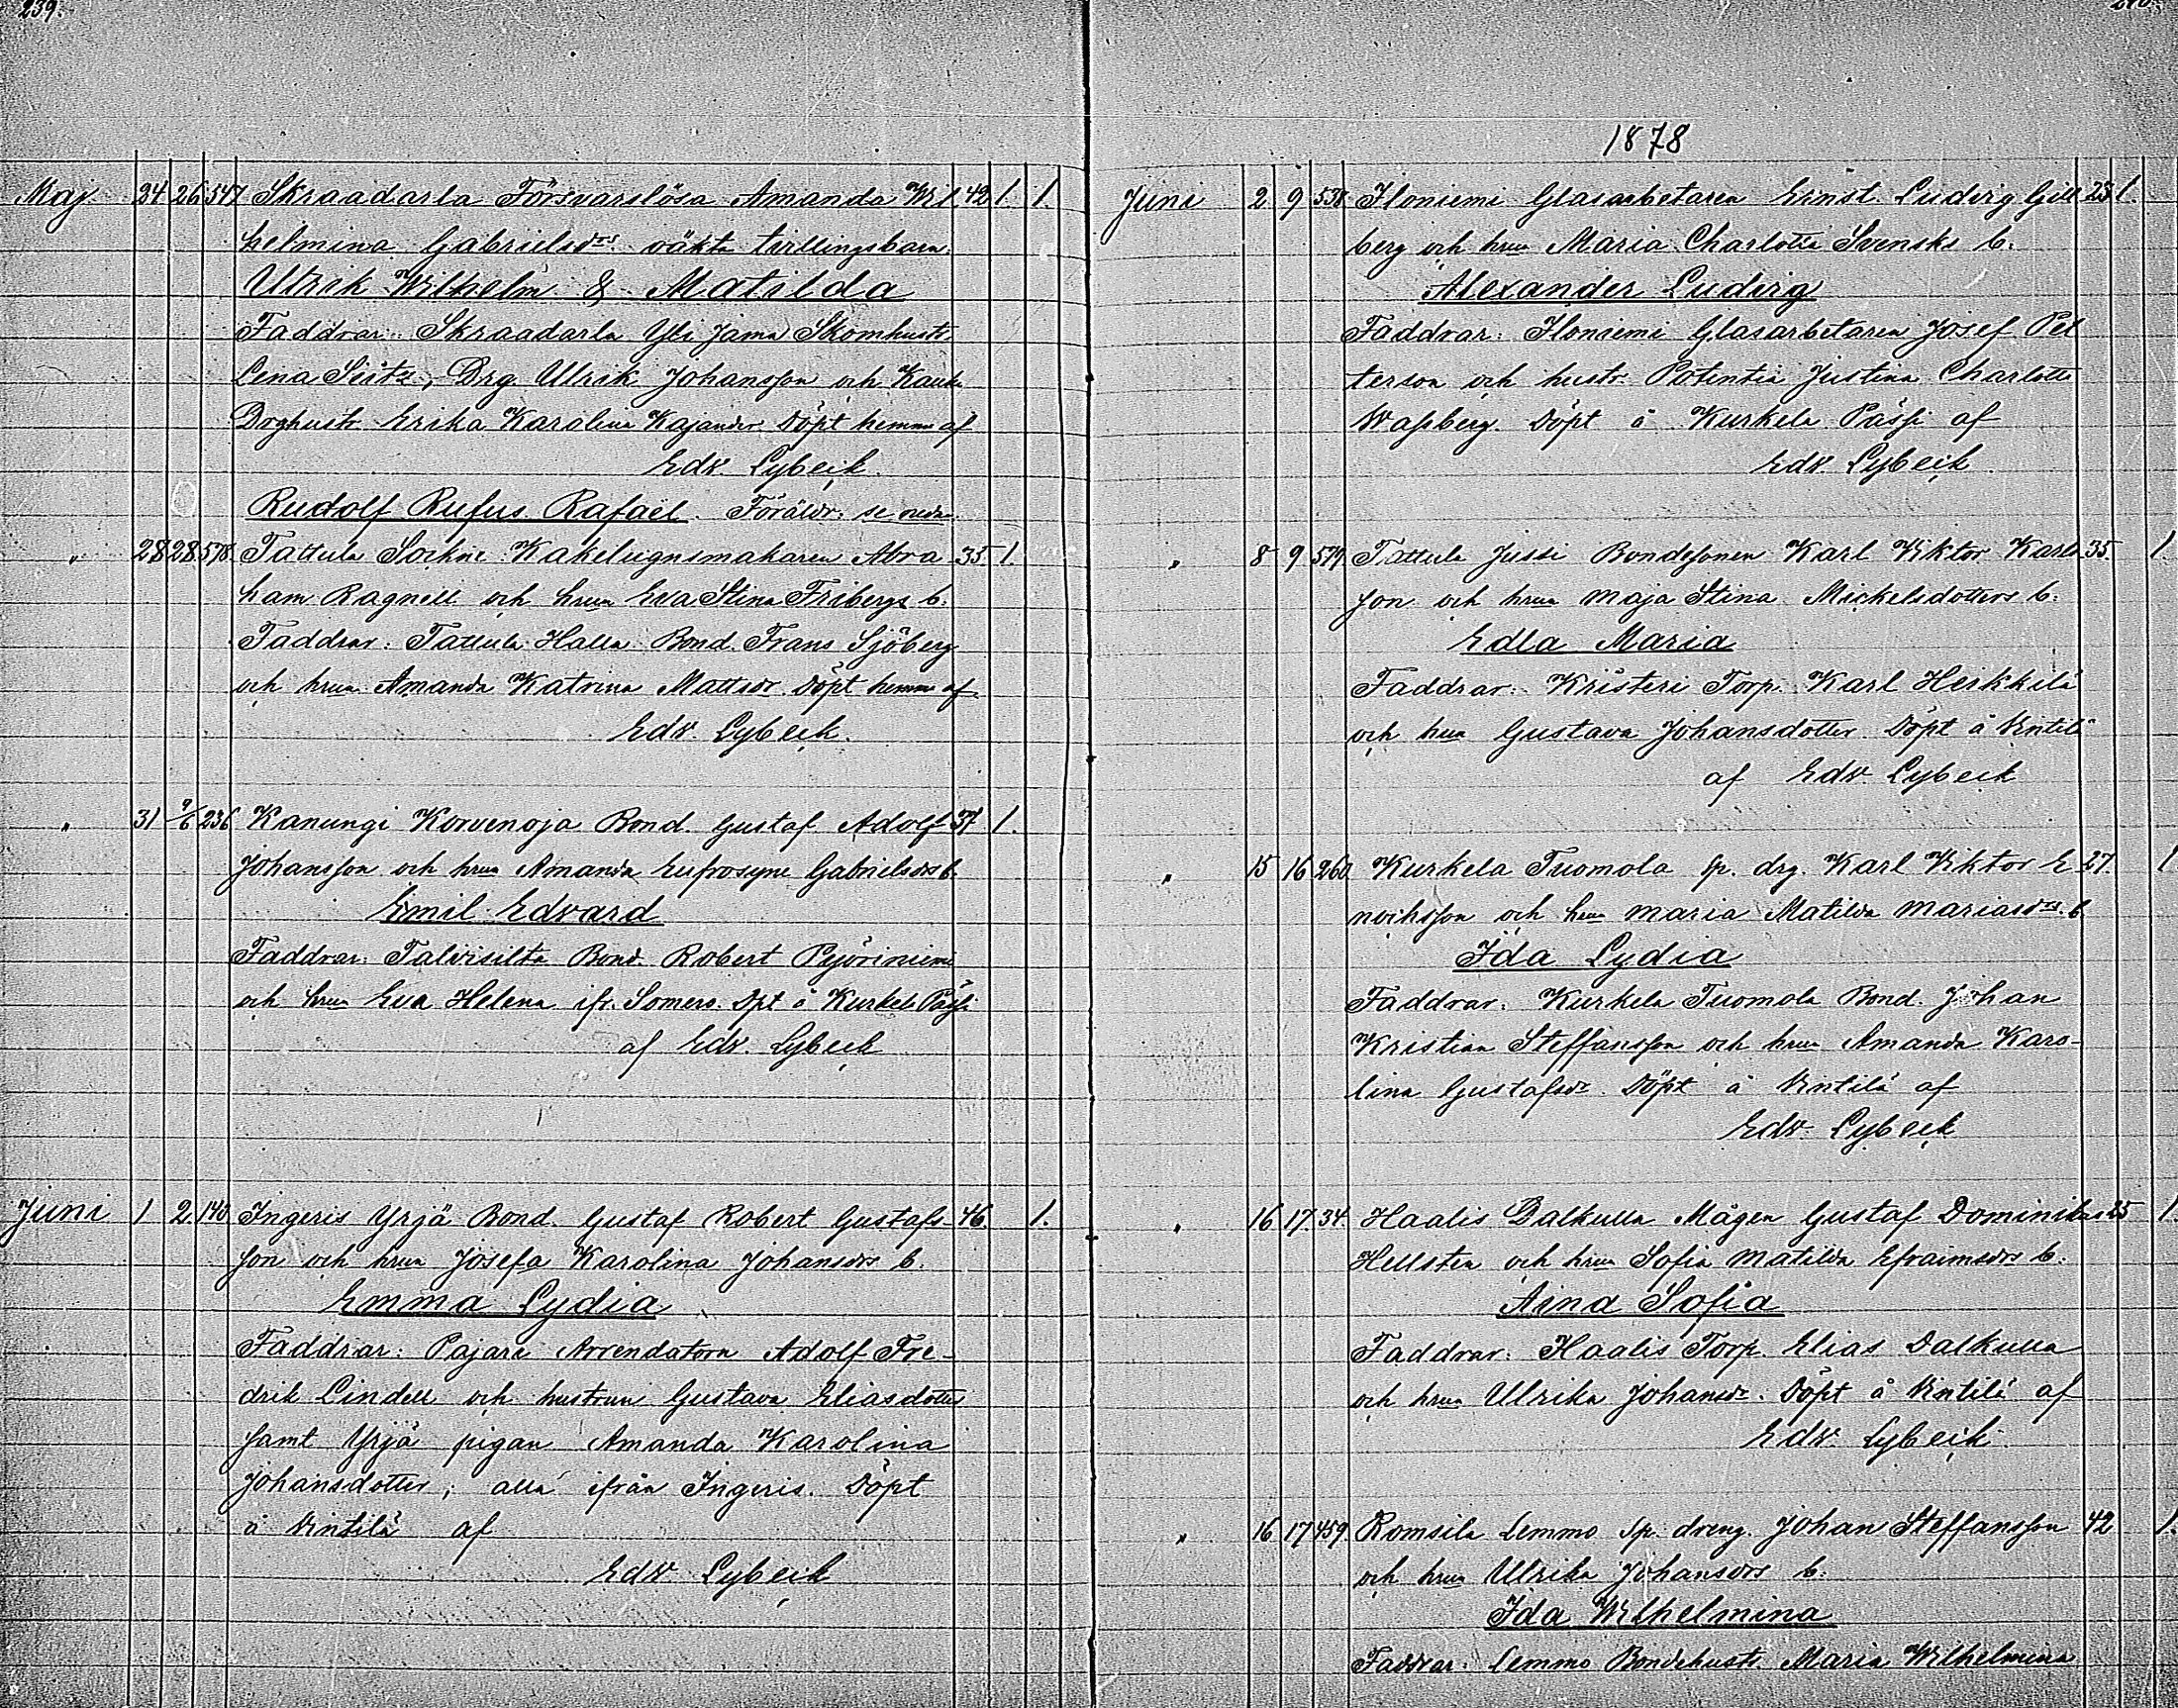 239.
Maj. 24 26 547 Skraadarla Försvarslösa Amanda Wil 42 1. 1.
helmina Gabrielsdrs oäkta tvillingsbarn.
Ulrik Wilhelm & Matilda
Faddrar: Skraadarla Yli Jama Skomhustr.
Lena Seitz, Drg Ulrik Johansson och
Drghustr. Erika Karolina Kajander. Döpt hemma af
Edv. Lybeck.
Rudolf Rufus Rafaël. Föräldr. se nedan
" 28 28 578. Tattula Sockne Kakelugnsmakaren Abra 35. 1.
ham Ragnell och hrun Eva Stina Fribergs b.
Faddrar: Tattula Halla Bond. Frans Sjöberg
och hrun Amanda Katrina Mattsdr. Döpt hemma af
Edv Lybeck.
" 31 9/6 236 Kanungi Korvenoja Bond. Gustaf Adolf 37 1.
Johansson och hrun Amanda Eufrosyne Gabrielsdrs b.
Emil Edvard
Faddrar: Talvisilta Bond. Robert Pyöriniemi
och hrun Eva Helena ifr. Somero. Dpt å Kurkela Pässi
af Edv. Lybeck
Juni 1 2. 140. Ingeris Yrjä Bond. Gustaf Robert Gustafs- 46. 1.
son och hrun Josefa Karolina Johansdrs b.
Emma Lydia
Faddrar: Pajari Arrendatorn Adolf Fre-
drik Lindell och hustrun Gustava Eliasdotter
samt Yrjä pigan Amanda Karolina
Johansdotter; alla ifrån Ingeris. Döpt
å Vintilä af
Edv Lybeck
1878
Juni 2 9 538 Iloniemi Glasarbetaren Ernst Ludvig Gill 23 1.
berg och hrun Maria Charlotta Svensks b.
Alexander Ludvig
Faddrar: Iloniemi Glasarbetaren Josef Pet
terson och hustr. Potentia Justina Charlotta
Wassberg. Döpt å Kurkela Pässi af
Edv. Lybeck
" 8 9 579 Tattula Jussi Bondesonen Karl Viktor Karls 35. 1.
son och hrun Maja Stina Mickelsdotters b.
Edla Maria
Faddrar: Kristeri Torp. Karl Heikkilä
och hrun Gustava Johansdotter. Döpt å Vintilä
af Edv. Lybeck
" 15 16 260 Kurkela Tuomola sp. drg. Karl Viktor E 27. 1
noichsson och hrun Maria Matilda Mariasdrs. b
Ida Lydia
Faddrar: Kurkela Tuomola Bond. Johan
Kristian Steffansson och hrun Amanda Karo-
lina Gustafsdr. Döpt å Vintilä af
Edv. Lybeck
" 16 17. 34. Haalis Dalkulla Mågen Gustaf Dominikus 25 1.
Hellsten och hrun Sofia Matilda Efraimsdrs b.
Aina Sofia
Faddrar: Haalis Torp. Elias Dalkulla
och hrun Ulrika Johansdr. Döpt å Vintilä af
Edv. Lybeck.
" 16 17 459. Romsila Lemmo Sp. dreng. Johan Steffansson 42 1.
och hrun Ulrika Johansdrs b.
Ida Wilhelmina
Faddrar: Lemmo Bondehustr. Maria Wilhelmina